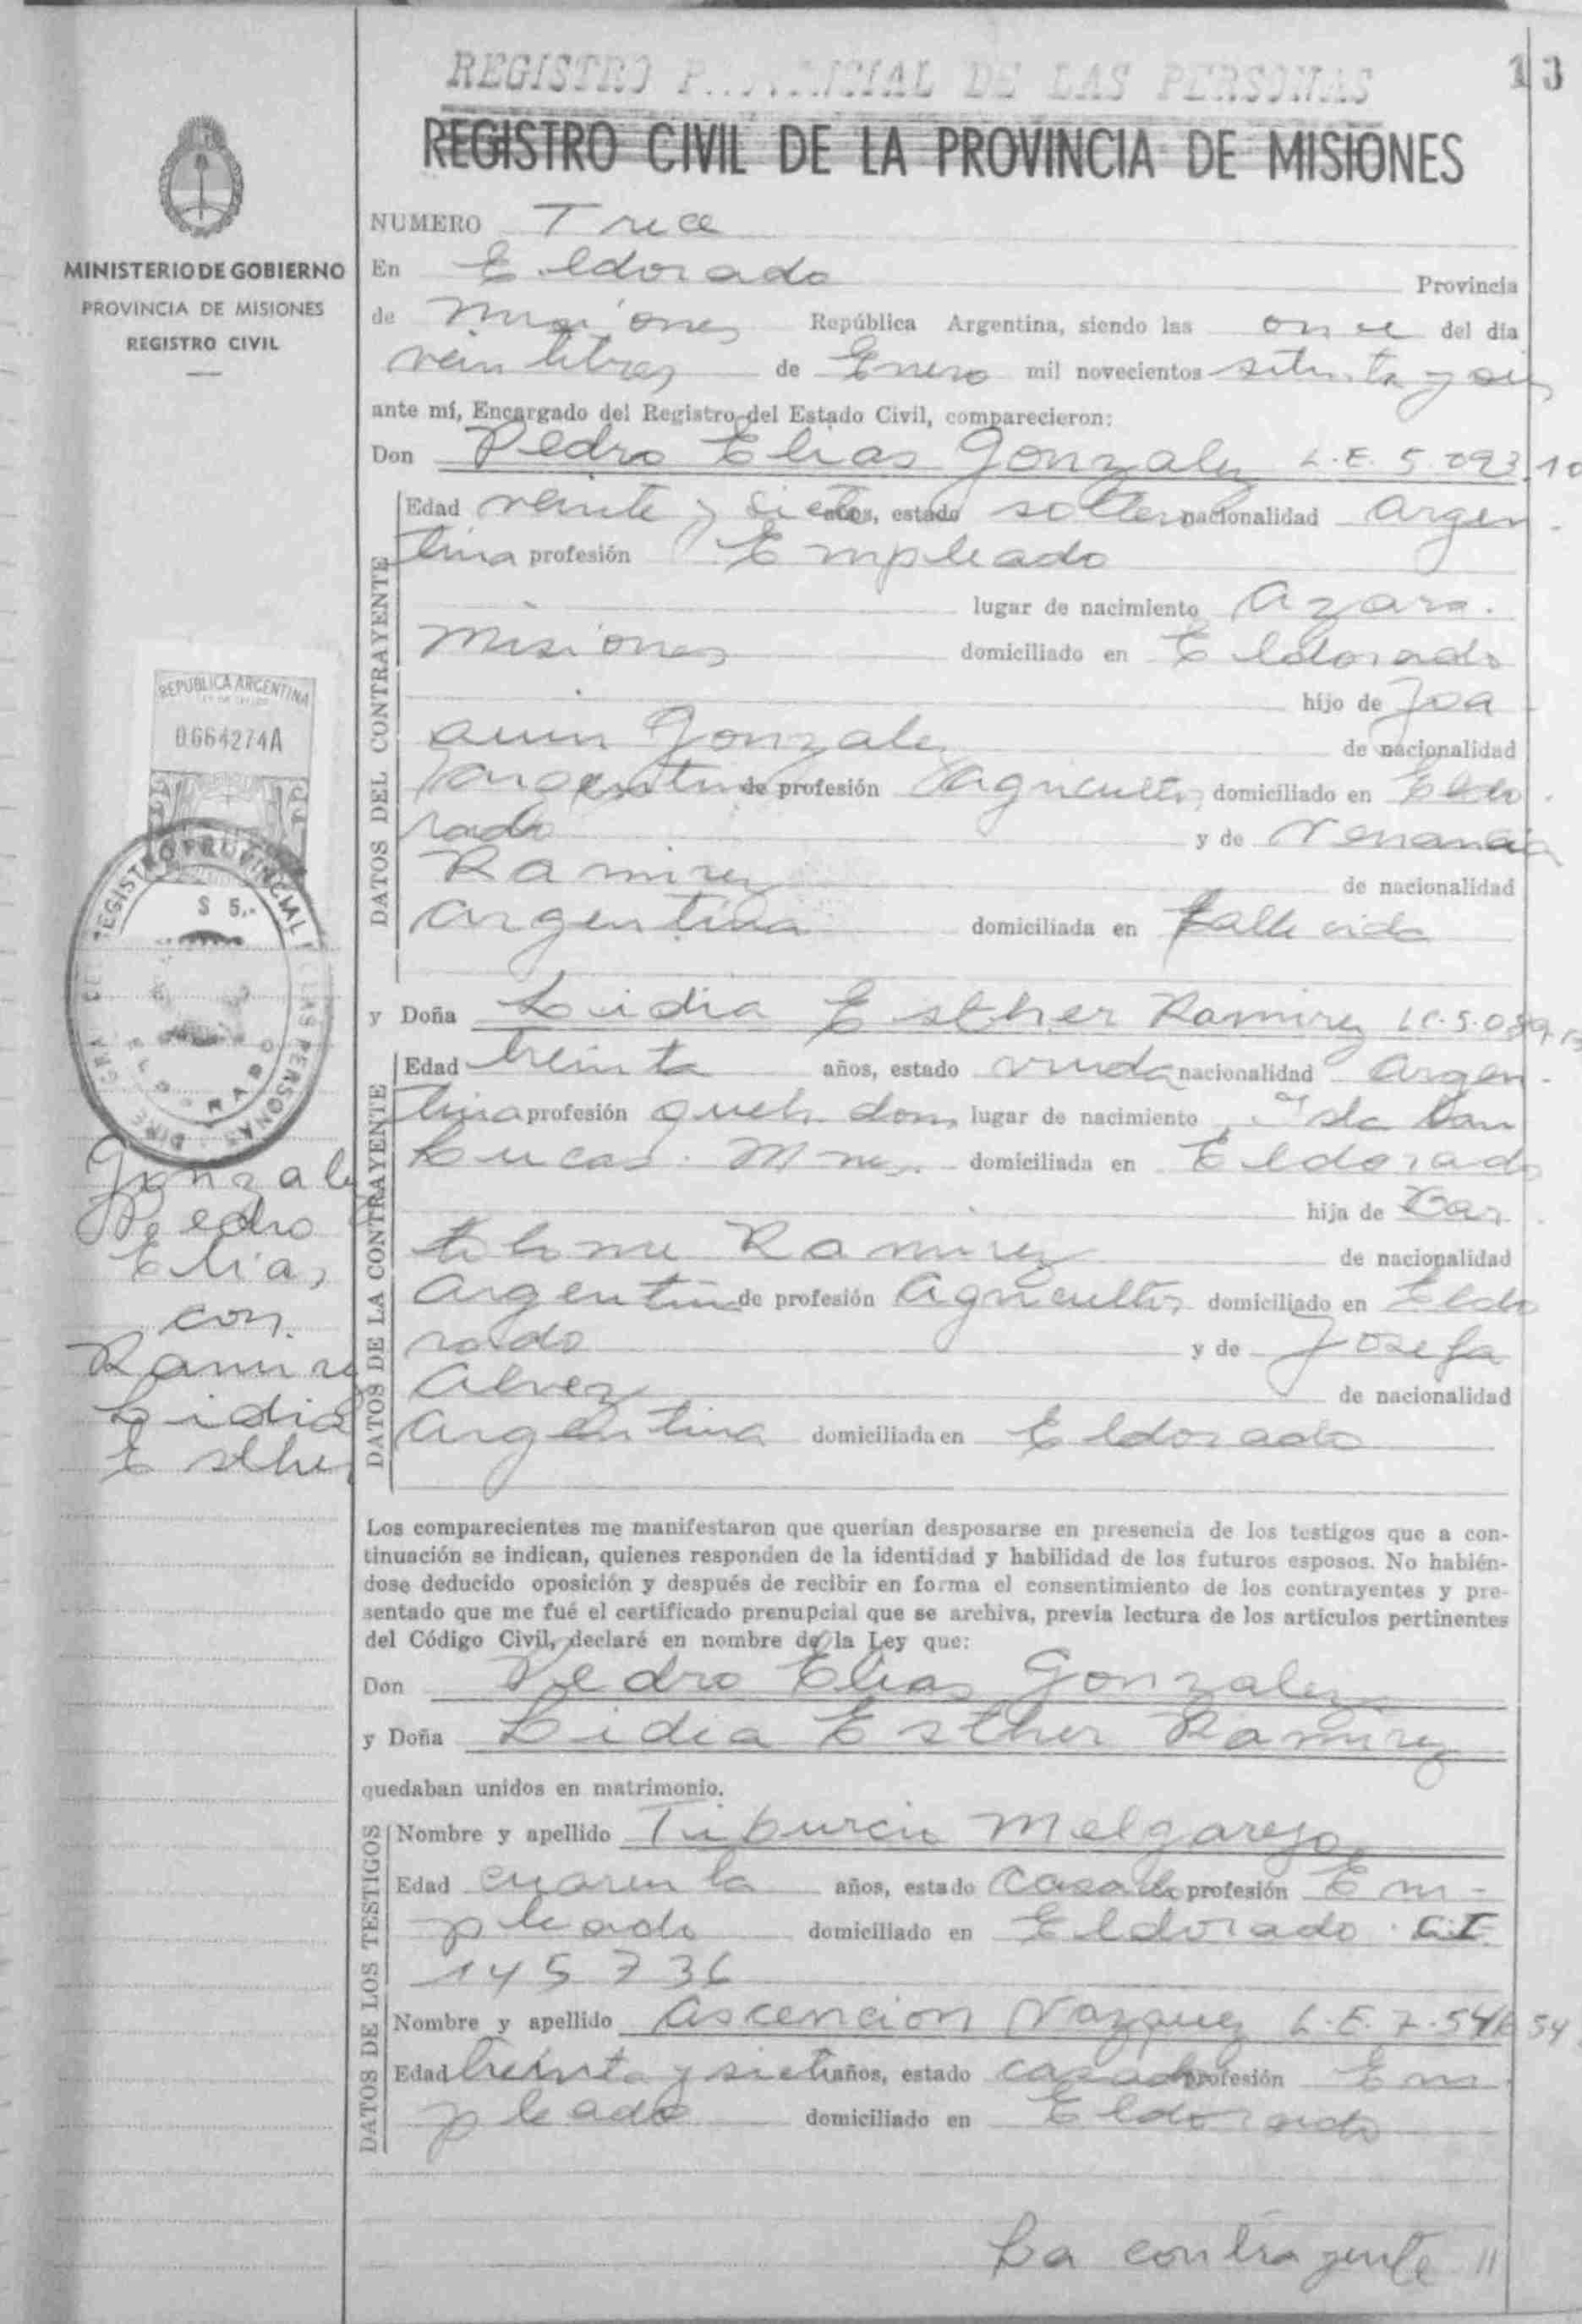 REGISTRO P CIAL DE LAS PERSONAS
13
REGISTRO CIVIL DE LA PROVINCIA DE MISIONES
MINISTERIO DE GOBIERNO
PROVINCIA DE MISIONES
REGISTRO CIVIL
NUMERO Trece
En Eldorado Provincia
de Misiones República Argentina, siendo las once del día
veintitres de Enero mil novecientos setenta y seis
ante mí, Encargado del Registro del Estado Civil, comparecieron:
Don Pedro Elias Gonzalez L.E. 5.093.10
DATOS DEL CONTRAYENTE
Edad veinte y siete años, estado soltero nacionalidad Argen-
tina profesión Empleado
lugar de nacimiento Azara.
Misiones domiciliado en Eldorado
hijo de Joa
quin Gonzalez de nacionalidad
argentina de profesión agricultor domiciliado en Eldo
rado y de Venancia
Ramirez de nacionalidad
argentina domiciliada en fallecida
REPUBLICA ARGENTINA
0664274A
REGISTRO PROVINCIAL DE LAS PERSONAS
$ 5,-
ELDORADO
y Doña Lidia Esther Ramirez LC.5.089.
DATOS DE LA CONTRAYENTE
Edad treinta años, estado viuda nacionalidad Argen-
tina profesión queh. dom. lugar de nacimiento Isla San
Lucas. Mnes. domiciliada en Eldorado
hija de Bar
tolome Ramirez de nacionalidad
argentina de profesión Agricultor domiciliado en Eldo
rado y de Josefa
Alvez de nacionalidad
argentina domiciliada en Eldorado
Gonzalez
Pedro
Elias
con
Ramirez
Lidia
Esther
Los comparecientes me manifestaron que querían desposarse en presencia de los testigos que a con-
tinuación se indican, quienes responden de la identidad y habilidad de los futuros esposos. No habién-
dose deducido oposición y después de recibir en forma el consentimiento de los contrayentes y pre-
sentado que me fué el certificado prenupcial que se archiva, previa lectura de los artículos pertinentes
del Código Civil, declaré en nombre de la Ley que:
Don Pedro Elias Gonzalez
y Doña Lidia Esther Ramirez
quedaban unidos en matrimonio.
DATOS DE LOS TESTIGOS
Nombre y apellido Tiburcio Melgarejo
Edad cuarenta años, estado casado profesión Em-
pleado domiciliado en Eldorado. C.I.
145736
Nombre y apellido Ascencion Vazquez L.E. 7.546.54
Edad treinta y siete años, estado casado profesión Em
pleado domiciliado en Eldorado
La contrayente //